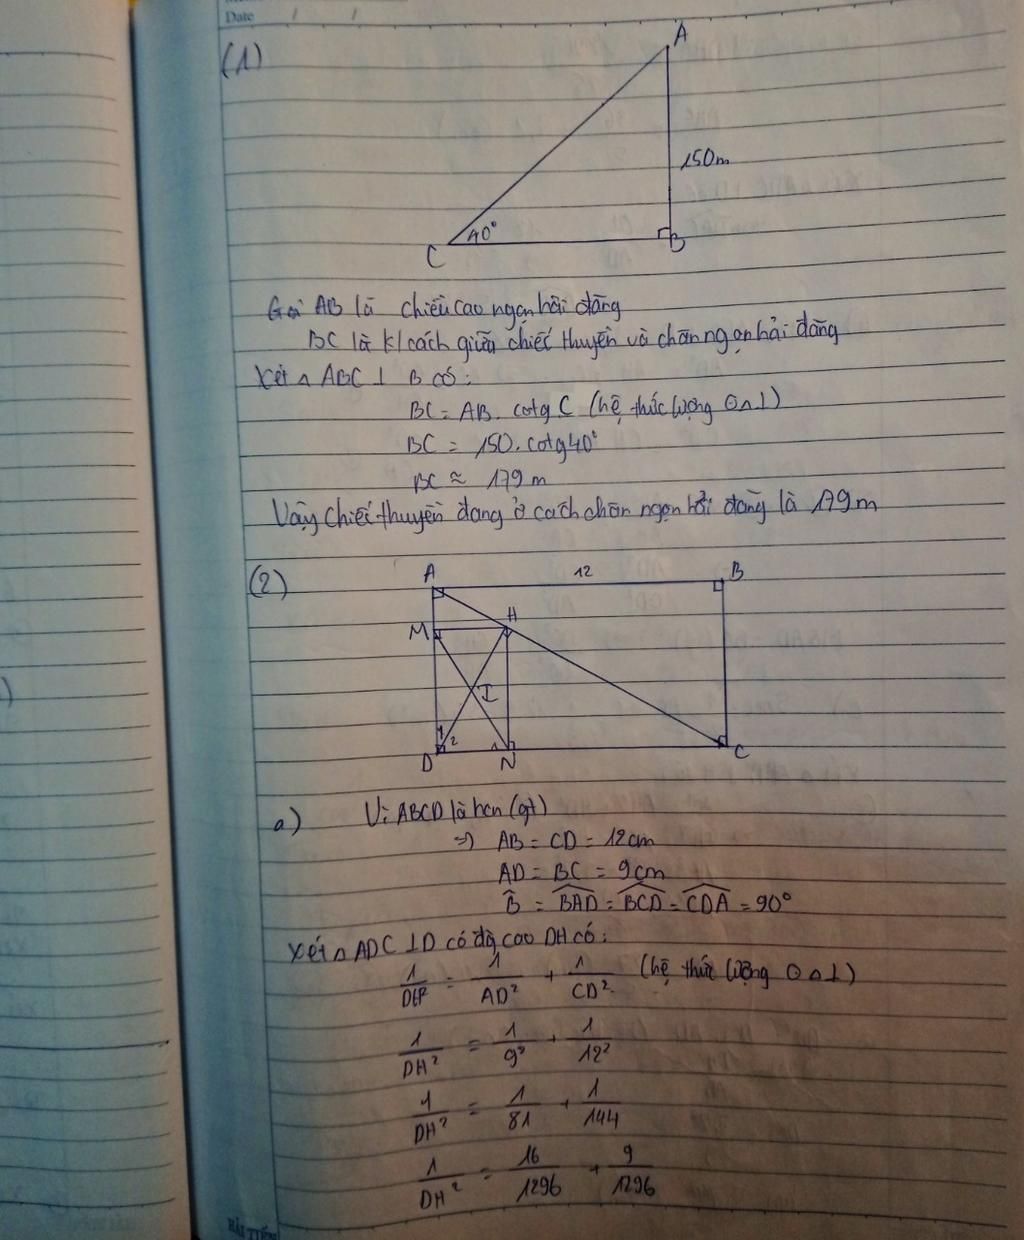 Date / /
(1)
A
150m
40°
C
B
Gọi AB là chiều cao ngọn hải đăng
BC là k/cách giữa chiếc thuyền và chân ngọn hải đăng
Xét △ ABC ⊥ B có:
BC = AB. cotg C (hệ thức lượng ʘ △ ⊥)
BC = 150. cotg40°
BC ≈ 179 m
Vậy chiếc thuyền đang ở cách chân ngọn hải đăng là 179m
(2)
A 12 B
M H
I
1 2 1
D N C
a) Vì ABCD là hcn (gt)
=> AB = CD = 12cm
AD = BC = 9cm
B̂ = BAD = BCD = CDA = 90°
Xét △ ADC ⊥ D có đg cao DH có:
1/DH² = 1/AD² + 1/CD² (hệ thức lượng ʘ △ ⊥)
1/DH² = 1/9² + 1/12²
1/DH² = 1/81 + 1/144
1/DH² = 16/1296 + 9/1296
HẢI TIẾN